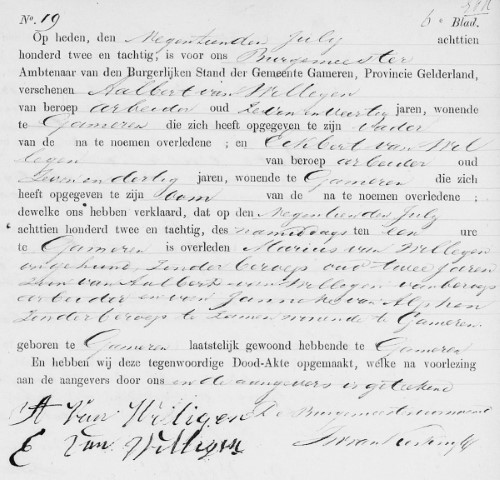 No. 19 6e Blad.
Op heden, den Negentienden July achttien
honderd twee en tachtig, is voor ons Burgemeester
Ambtenaar van den Burgerlijken Stand der Gemeente Gameren, Provincie Gelderland,
verschenen Aalbert van Willegen
van beroep arbeider oud Zeven en veertig jaren, wonende
te Gameren die zich heeft opgegeven te zijn vader
van de na te noemen overledene ; en Eckbert van Wil
legen van beroep arbeider oud
Zeven en dertig jaren, wonende te Gameren die zich
heeft opgegeven te zijn oom van de na te noemen overledene ;
dewelke ons hebben verklaard, dat op den Negentienden July
achttien honderd twee en tachtig, des namiddags ten een ure
te Gameren is overleden Marius van Willegen
ongehuwd, Zonder beroep oud twee jaren
Zoon van Aalbert van Willegen van beroep
arbeider en van Janneke van Alphen
Zonder beroep te Zamen wonende te Gameren
geboren te Gameren laatstelijk gewoond hebbende te Gameren
En hebben wij deze tegenwoordige Dood-Akte opgemaakt, welke na voorlezing
aan de aangevers door ons en de aangevers is geteekend
A Van Willigen De Burgemeester voornoemd
E Van Willigen